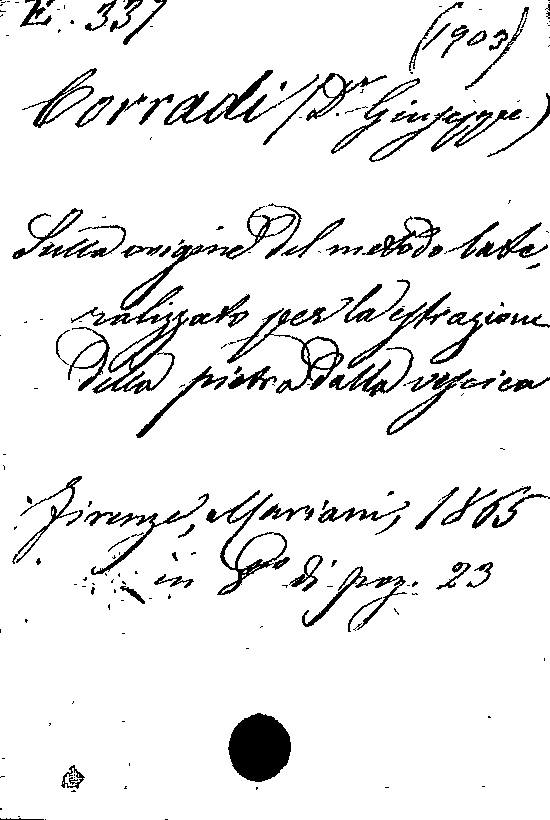 E. 337
(1903)
Corradi (Dr Giuseppe)
Sulla origine del metodo late-
ralizzato per la estrazione
della pietra dalla vescica
Firenze, Mariani, 1865
in 8vo di pag. 23